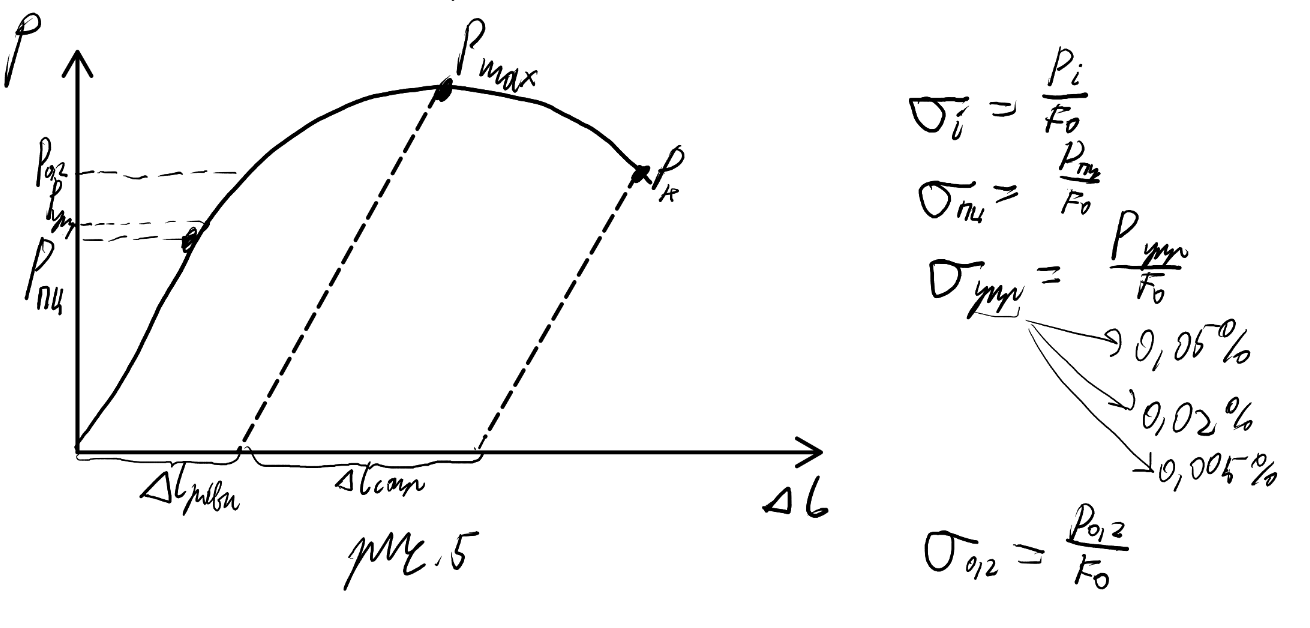 P
Pmax
P0,2
Pупр
Pпц
Pк
Δlравн
Δlсоср
Δl
рис. 5
σi = Pi / F0
σпц = Pпц / F0
σупр = Pупр / F0
0,05%
0,02%
0,005%
σ0,2 = P0,2 / F0